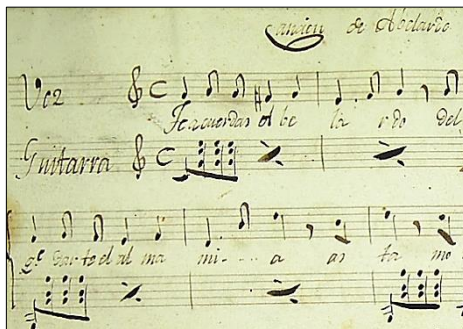 Cancion de Abelardo
Voz
Te acuerdas el be la rdo del
Guitarra
qe. dar te el al ma mi- - - a as ta mo